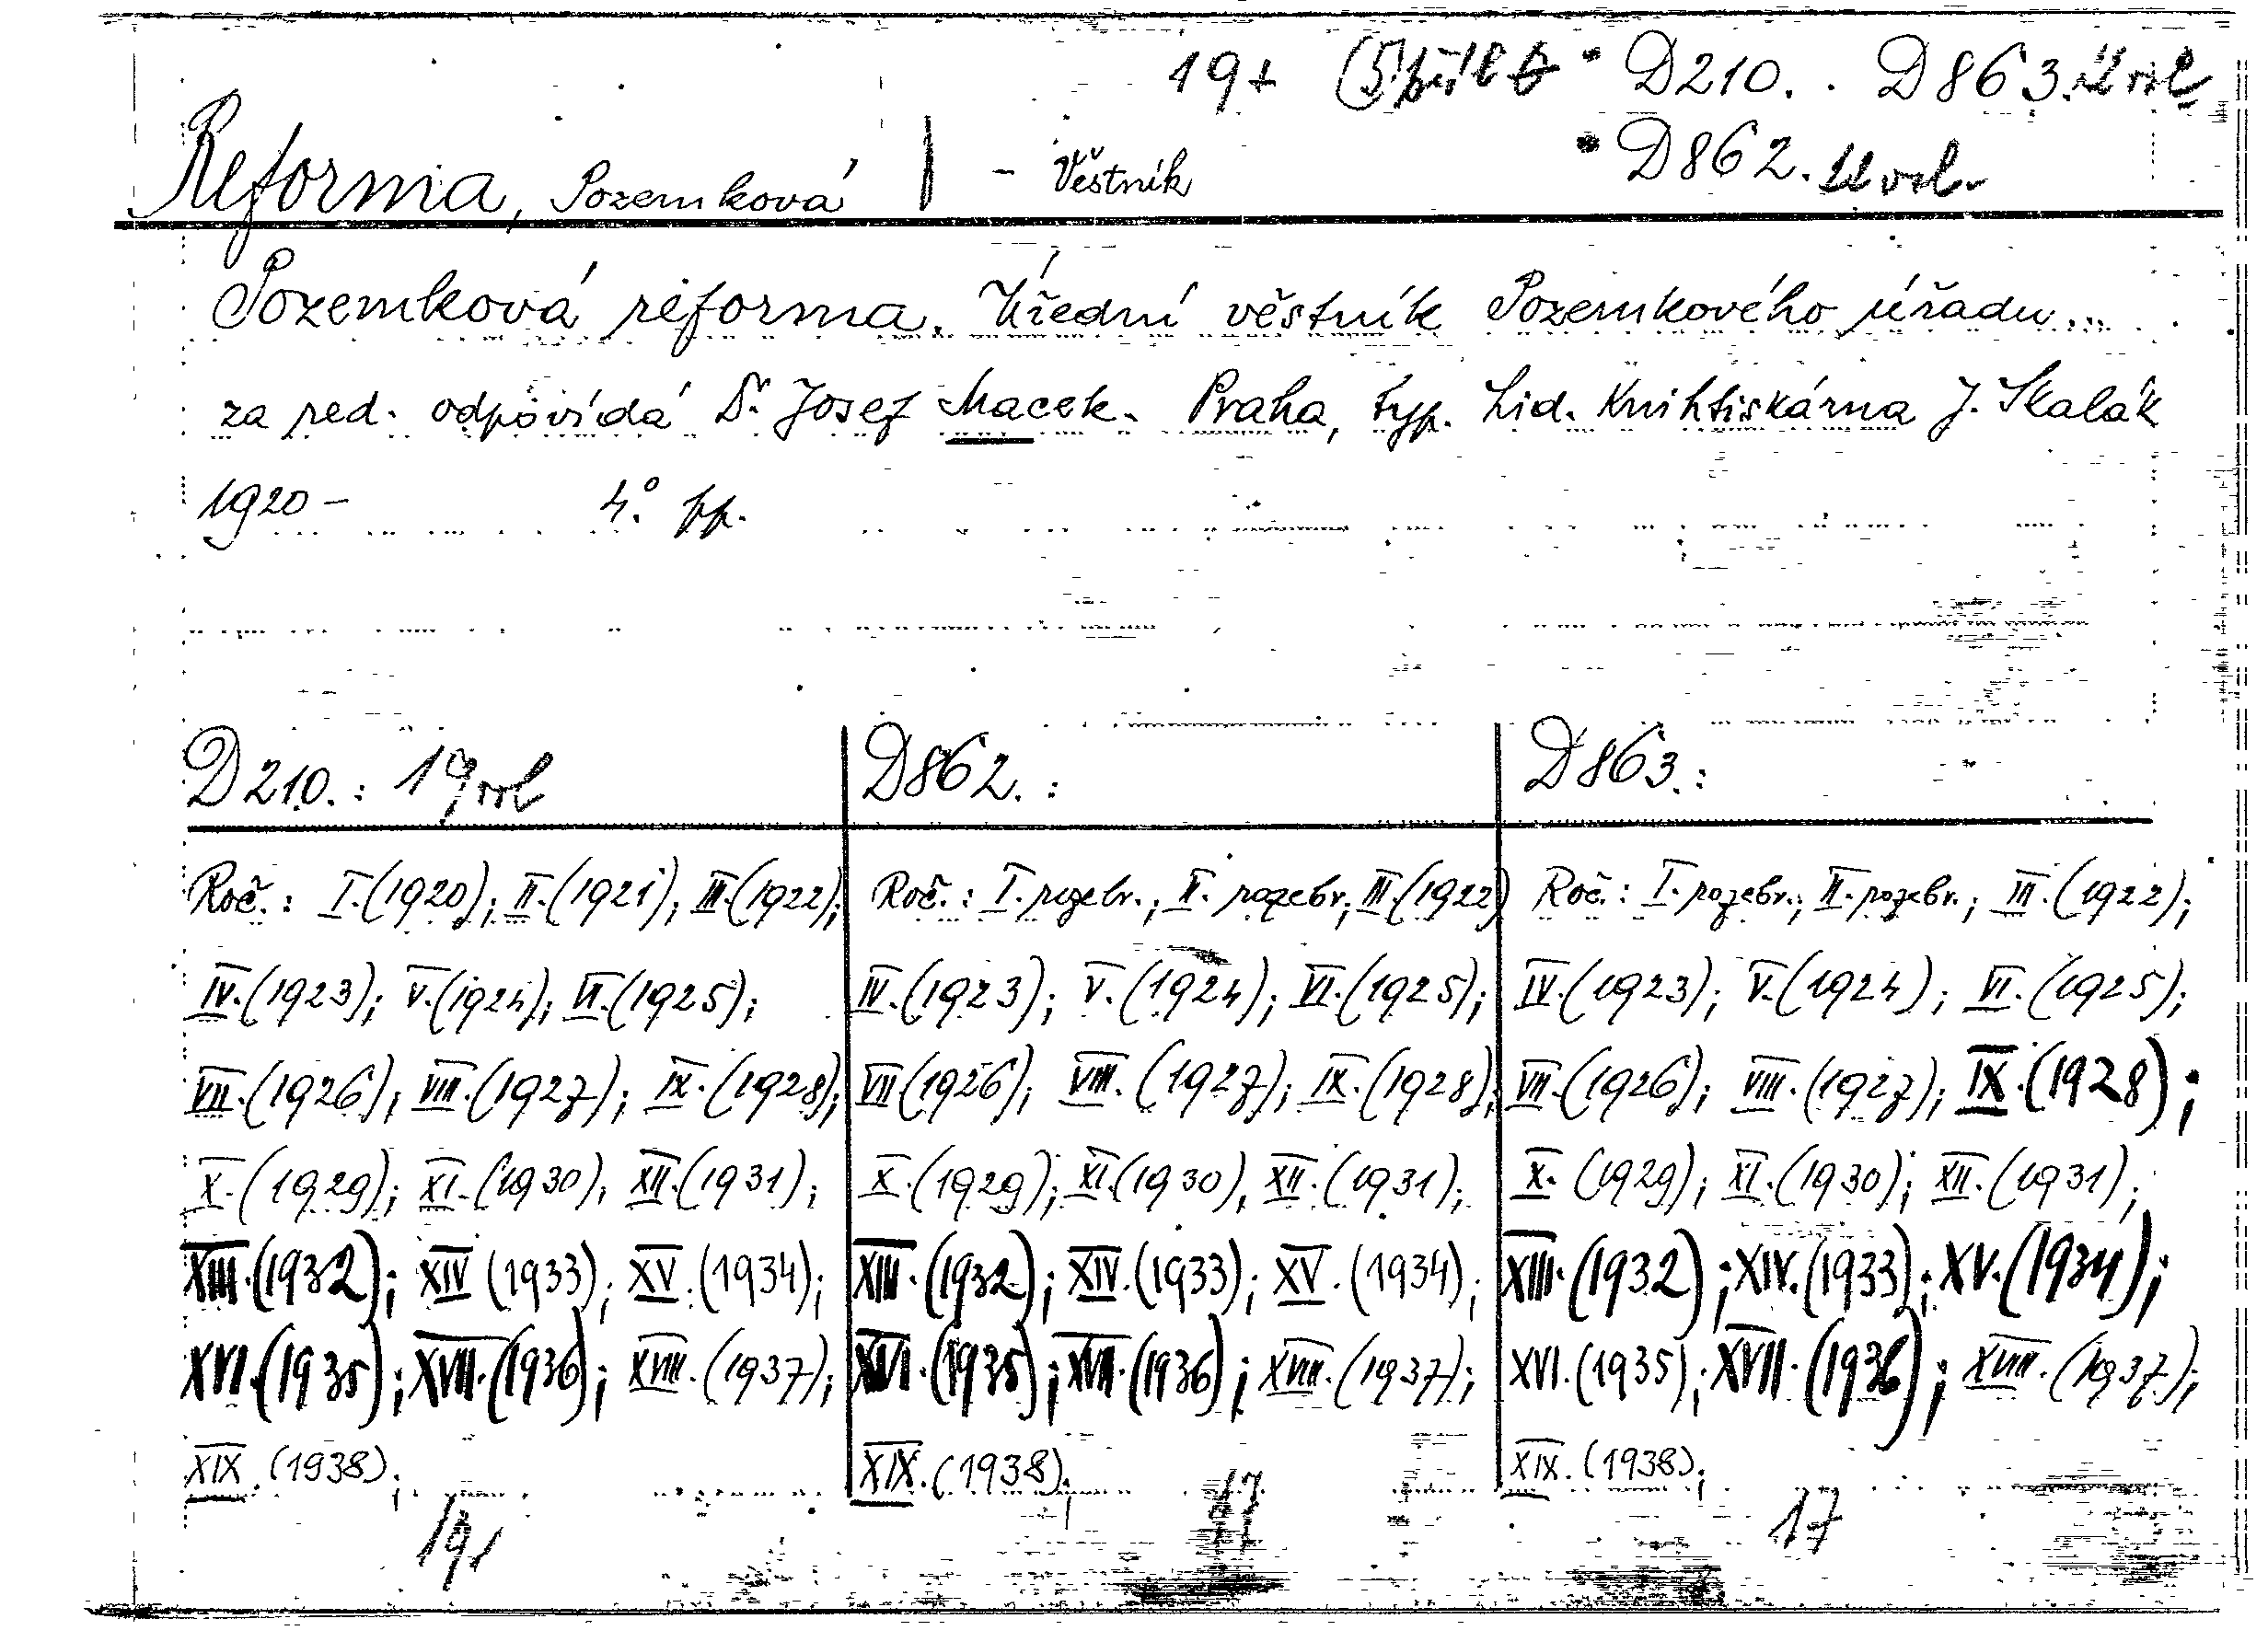 19+ D210. . D863.
Reforma, Pozemková | - Věstník
D862.
Pozemková reforma. Úřední věstník Pozemkového úřadu...
za red. odpovídá Dr. Josef Macek. Praha, typ. Lid. Knihtiskárna J. Skalák
1920 - 4.° pp.
D210.: 19 D862.: D863.:
Roč.: I.(1920); II.(1921); III.(1922); Roč.: I. rozebr.; II. rozebr; III.(1922) Roč.: I. rozebr.; II. rozebr.; III.(1922);
IV.(1923); V.(1924); VI.(1925); IV.(1923); V.(1924); VI.(1925); IV.(1923); V.(1924); VI.(1925);
VII.(1926); VIII.(1927); IX.(1928); VII(1926); VIII.(1927); IX.(1928); VII.(1926); VIII.(1927); IX.(1928);
X.(1929); XI.(1930), XII.(1931); X.(1929); XI.(1930), XII.(1931); X.(1929); XI.(1930); XII.(1931);
XIII.(1932); XIV(1933); XV.(1934); XIII.(1932); XIV.(1933); XV.(1934); XIII.(1932); XIV.(1933); XV.(1934);
XVI.(1935); XVII.(1936); XVIII.(1937); XVI.(1935); XVII.(1936); XVIII.(1937); XVI.(1935); XVII.(1936); XVIII.(1937);
XIX.(1938); XIX.(1938); XIX.(1938);
19 17 17